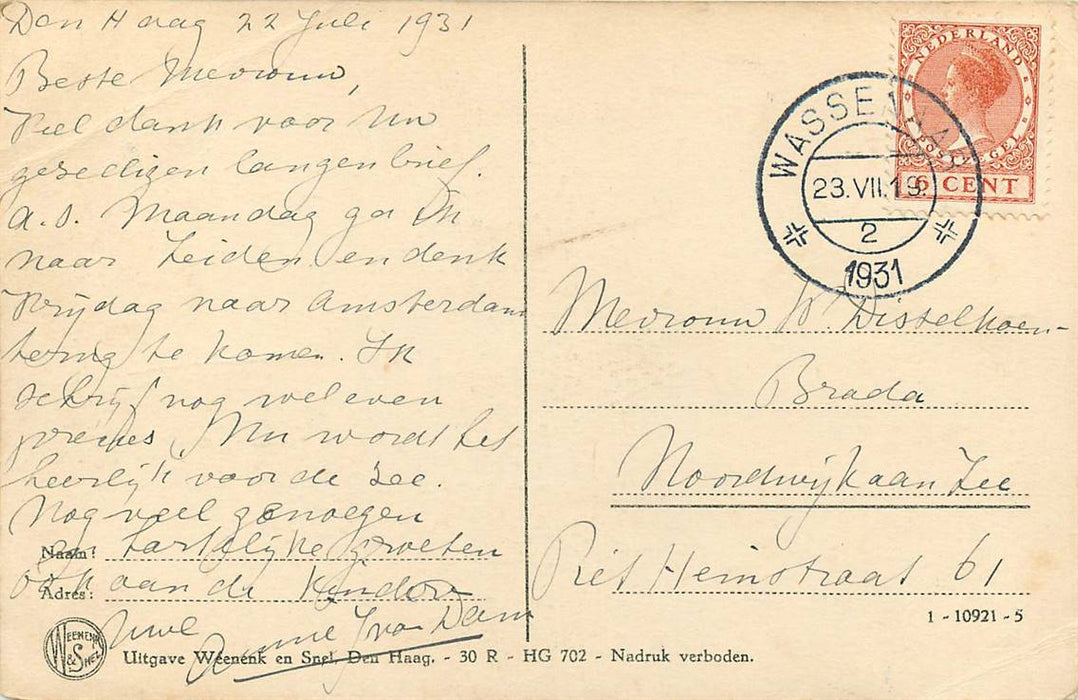 Den Haag 22 Juli 1931
Beste Mevrouw,
Veel dank voor Uw
gezelligen langen brief.
a.s. Maandag ga ik
naar Leiden en denk
Vrijdag naar Amsterdam
terug te komen. Ik
schrijf nog wel even
precies. Nu wordt het
heerlijk voor de zee.
Nog veel genoegen
en hartelijke groeten
ook aan de kinderen
Uwe
J van Dam
Naam:
Adres:
WEENENK & SNEL
Uitgave Weenenk en Snel, Den Haag. - 30 R - HG 702 - Nadruk verboden.
NEDERLAND
POSTZEGEL
6 CENT
WASSENAAR
23.VII.19.
2
1931
Mevrouw Disselkoen-
Brada
Noordwijk aan Zee
Piet Heinstraat 61
1 - 10921 - 5